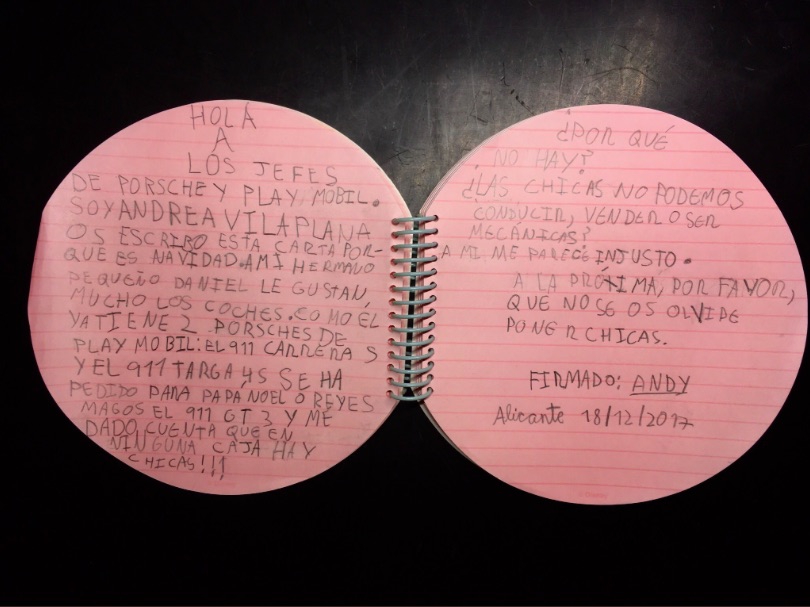 HOLA
A
LOS JEFES
DE PORSCHE Y PLAY MOBIL.
SOY ANDREA VILAPLANA
OS ESCRIBO ESTA CARTA POR-
QUE ES NAVIDAD. A MI HERMANO
PEQUEÑO DANIEL LE GUSTAN,
MUCHO LOS COCHES. COMO ÉL
YA TIENE 2 PORSCHES DE
PLAY MOBIL: EL 911 CARRERA S
Y EL 911 TARGA 4S SE HA
PEDIDO PARA PAPÁ NOEL O REYES
MAGOS EL 911 GT3 Y ME
DADO CUENTA QUE EN
NINGUNA CAJA HAY
CHICAS!!!
¿POR QUÉ
NO HAY?
¿LAS CHICAS NO PODEMOS
CONDUCIR, VENDER O SER
MECÁNICAS?
A MI ME PARECE INJUSTO.
A LA PRÓXIMA, POR FAVOR,
QUE NO SE OS OLVIDE
PONER CHICAS.
FIRMADO: ANDY
Alicante 18/12/2017